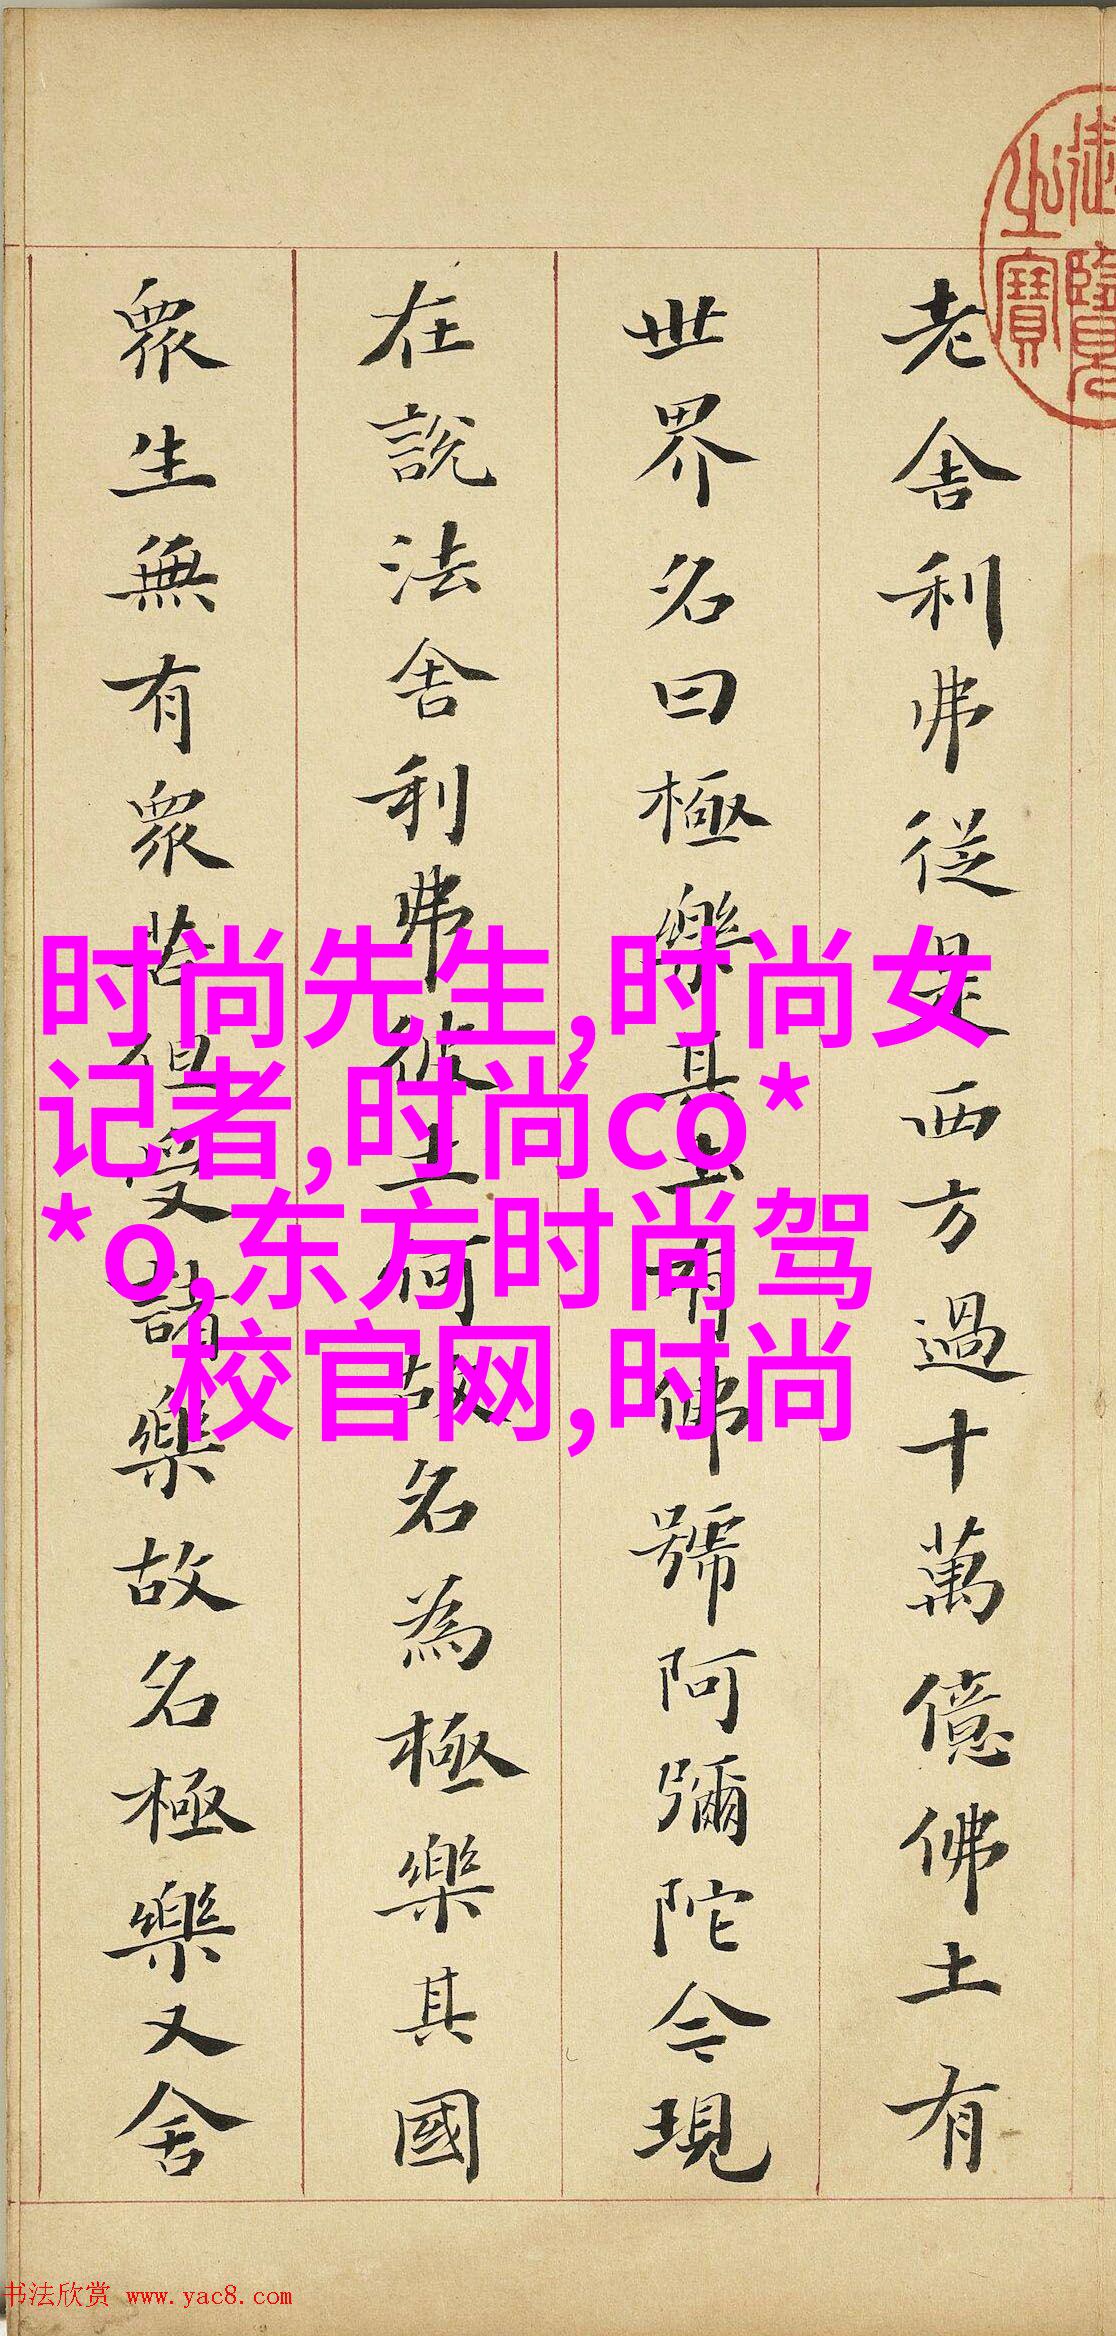 御覽
之寶
老舍利弗從是西方過十萬億佛土有
世界名曰極樂其土有佛號阿彌陀今現
在說法舍利弗彼土何故名為極樂其國
眾生無有眾苦但受諸樂故名極樂又舍
时尚先生,时尚女
记者,时尚co*
*o,东方时尚驾
校官网,时尚
书法欣赏 www.yac8.com